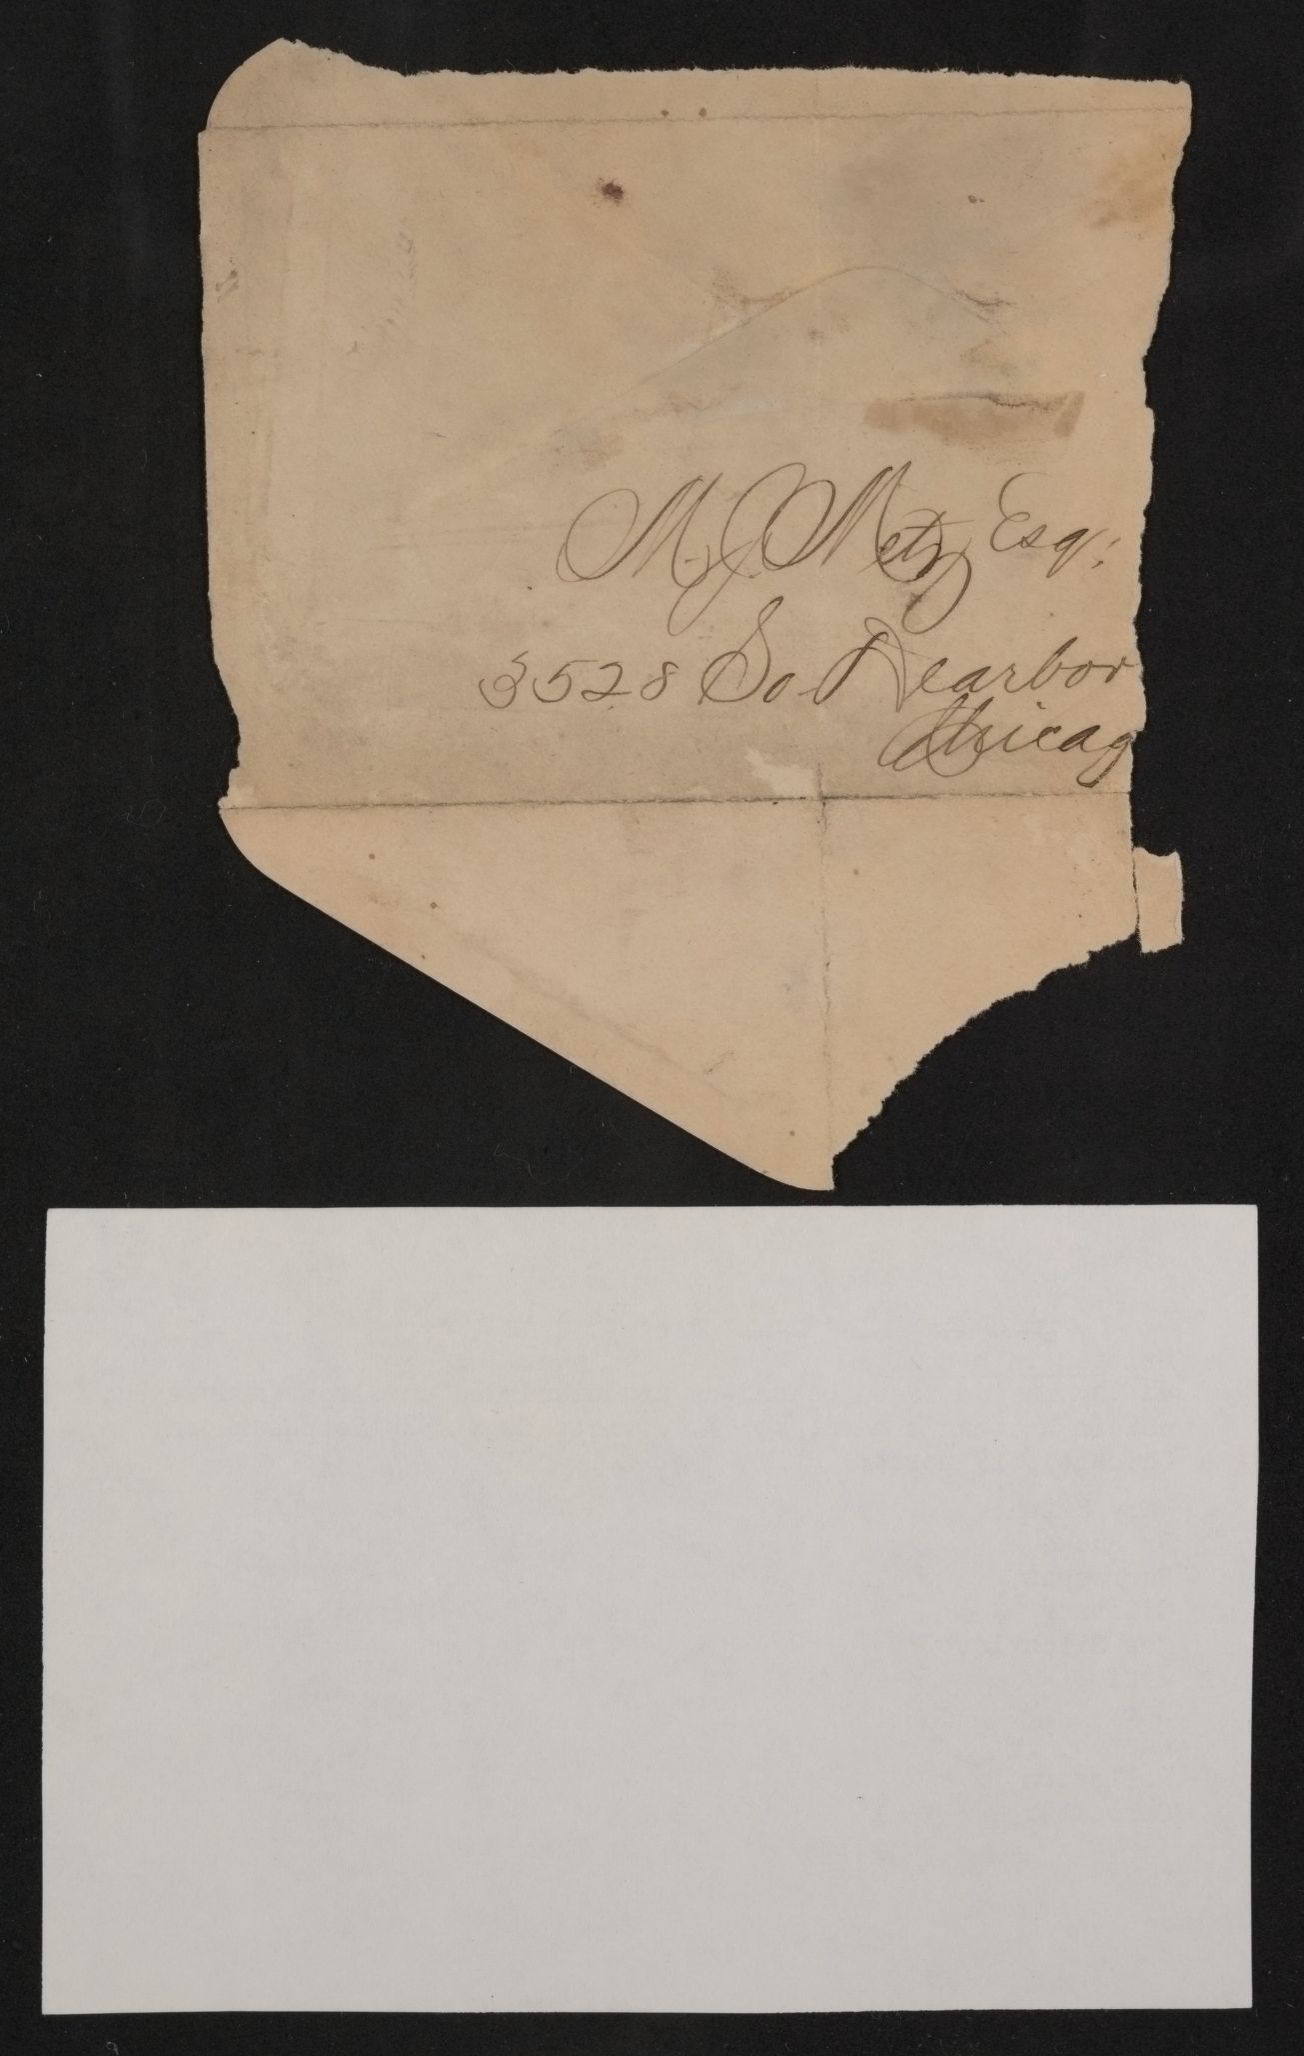 M. J. Metz Esq:
3528 So. Dearbor
Chicag